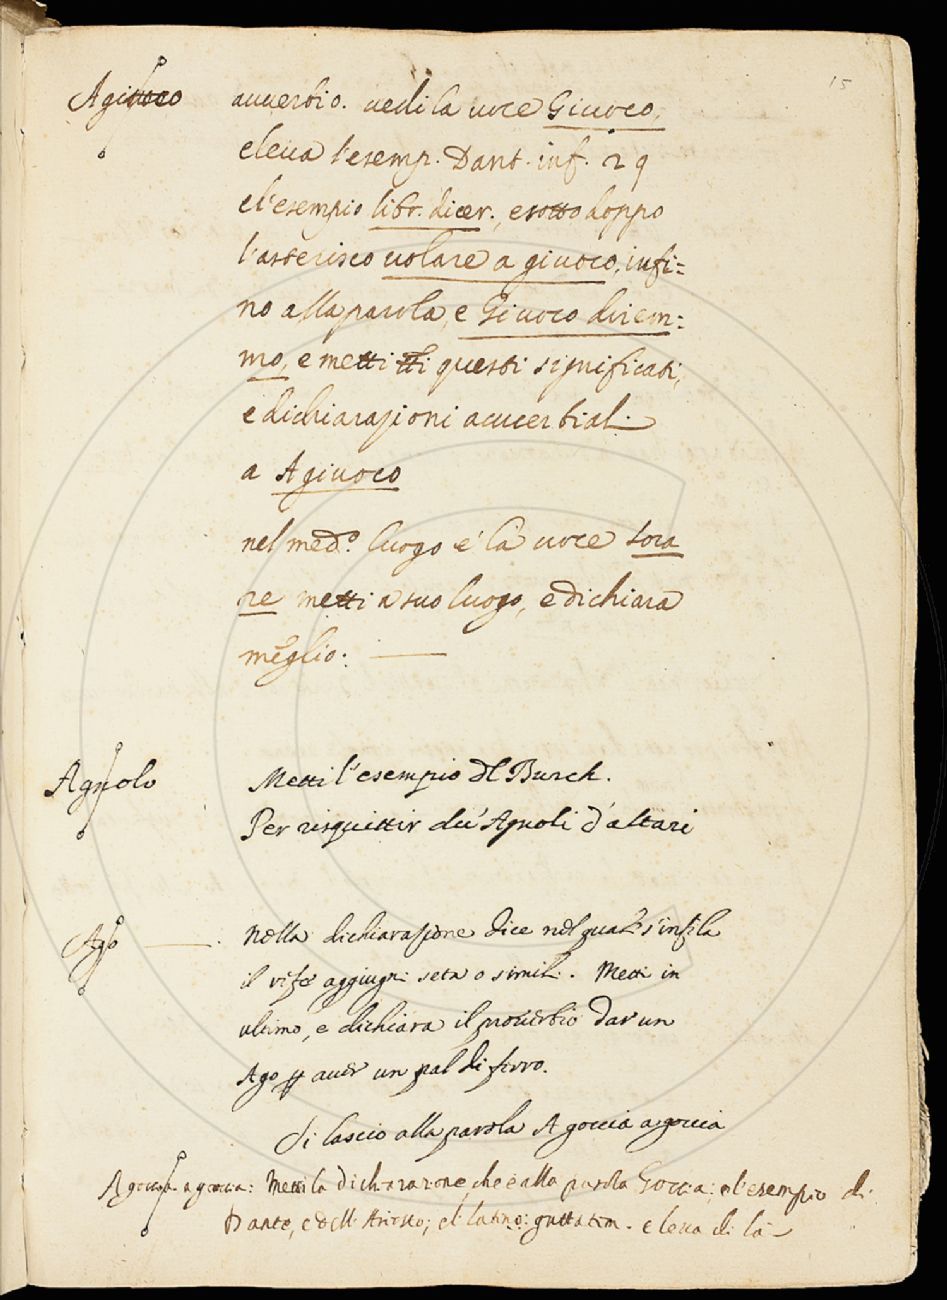 15
Agiuoco avverbio. vedi la voce Giuoco,
e leva l'esemp. Dant. inf. 29
e l'esempio libr. dicer., e sotto doppo
l'asterisco volare a giuoco, infi=
no alla parola, e Giuoco direm=
mo, e metti questi significati,
e dichiarazioni avverbial.
a Agiuoco
nel med.o luogo e' la voce sora
re metti a suo luogo, e dichiara
meglio.
Agnolo Metti l'esempio del Burch.
Per risquittir du' Agnoli d'altari
Ago Nella dichiarazione dice nel quale s'infila
il refe aggiugni seta o simili. Metti in
ultimo, e dichiara il proverbio Dar un
Ago p aver un pal di ferro.
Si lascio alla parola A goccia a goccia
A goccia a goccia: Metti la dichiarazione che è alla parola Goccia; e l'esempio di
Dante, e dell'Ariosto; e'l latino: guttatim. e leva di là